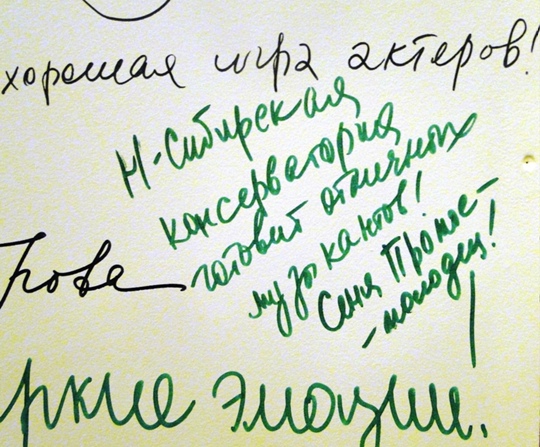 хорошая игра актеров!
Н-Сибирская
консерватория
готовит отличных
музыкантов!
Сеня Промос-
-молодец!
рова
ркие эмоции.